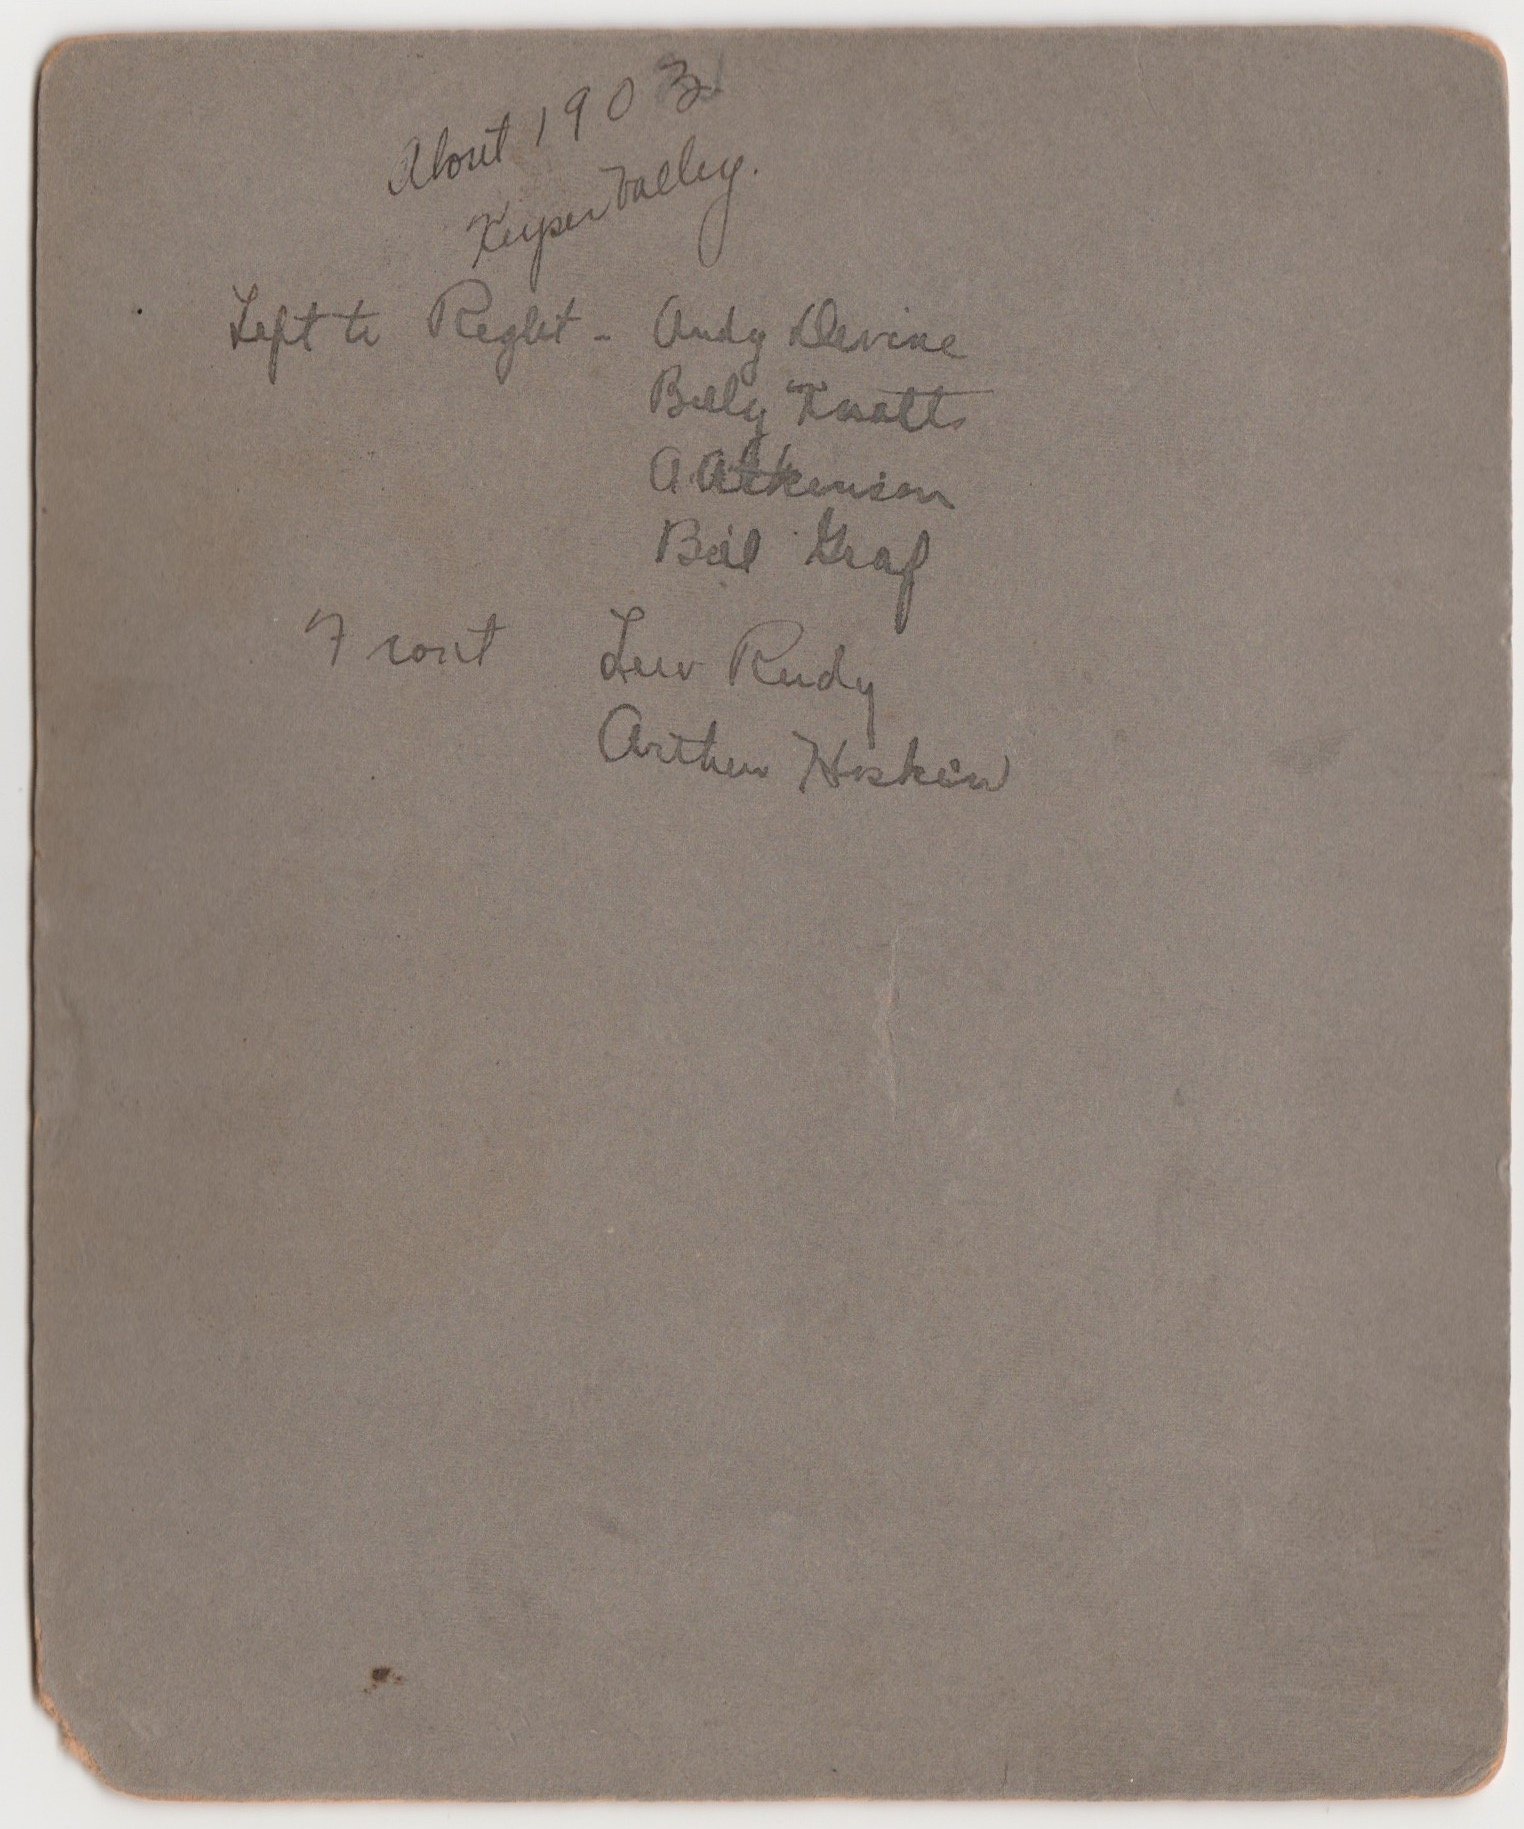 About 1903
Valley.
Left to Right - Andy Devine
Billy Knatts
A Atkinson
Bill Graf
Front Lew Rudy
Arthur Hoskin